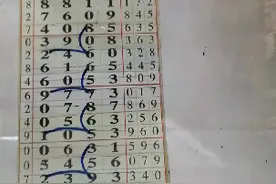 8 8 8 1 1 1 7 2
2 7 6 0 9 8 4 5
7 4 0 8 5 6 3 5
0 3 9 0 8 3 6 3
2 2 4 6 0 3 2 8
8 6 1 6 5 4 4 5
4 6 0 5 3 8 0 9
6 9 7 7 3 0 1 7
2 0 7 8 7 8 6 9
4 0 5 6 3 2 5 6
9 1 0 5 3 9 6 0
0 0 6 3 1 5 9 6
0 5 4 5 6 0 7 9
7 2 3 9 3 3 4 0